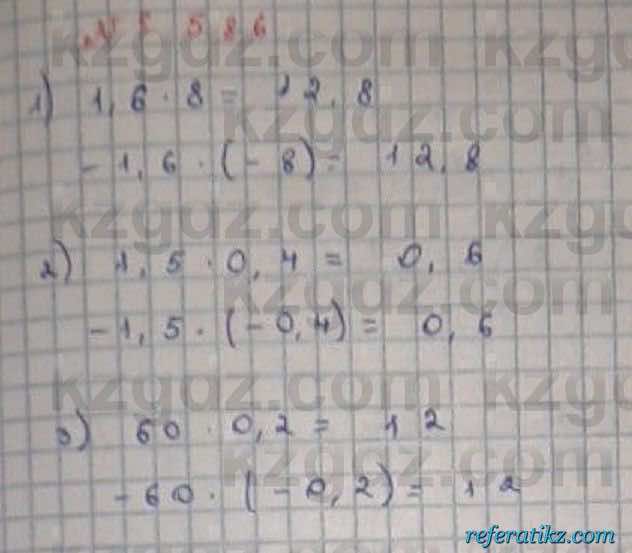 № 586
1) 1,6 · 8 = 12,8
-1,6 · (-8) = 12,8
2) 1,5 · 0,4 = 0,6
-1,5 · (-0,4) = 0,6
3) 60 · 0,2 = 12
-60 · (-0,2) = 12
kzgdz.com
kzgdz.com
kzgdz.com
kzgdz.com
kzgdz.com
referatikz.com